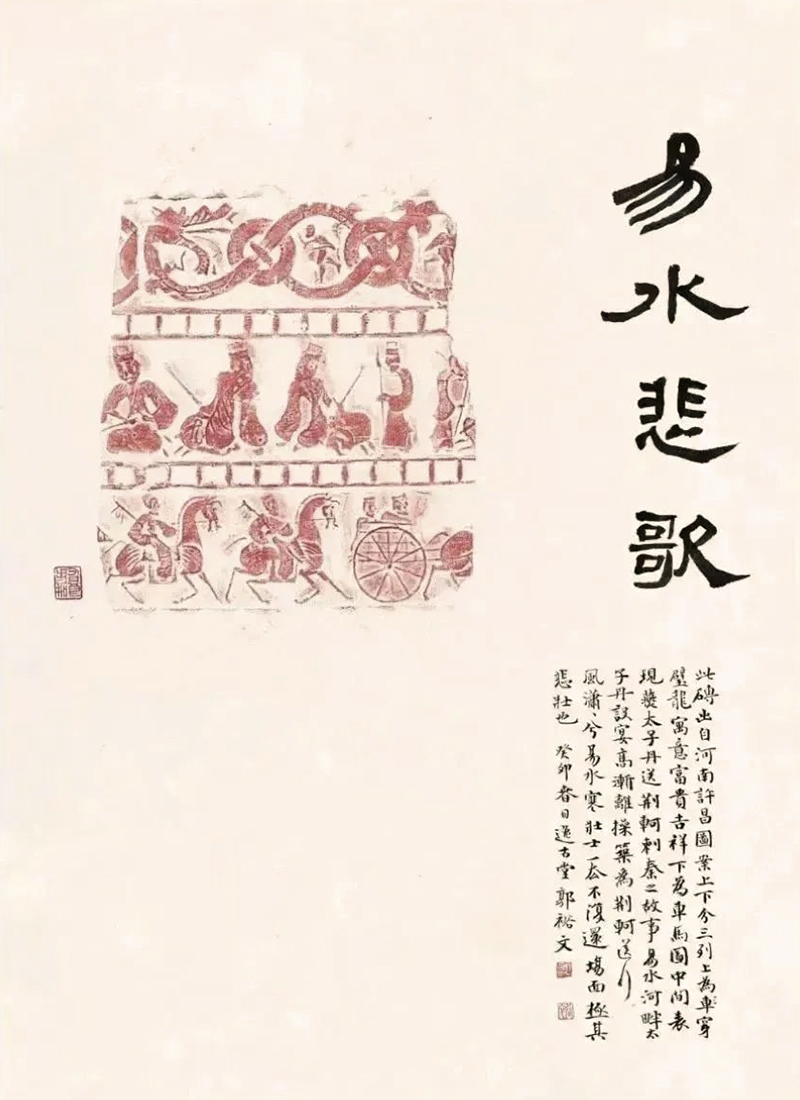 易水悲歌
此磚出自河南許昌圖案上下分三列上為穿
璧龍寓意富貴吉祥下為車馬圖中間表
現燕太子丹送荊軻刺秦之故事易水河畔太
子丹設宴高漸離操築為荊軻送行
風瀟、兮易水寒壯士一去不復還場面極其
悲壯也 癸卯春日古堂郭裕文